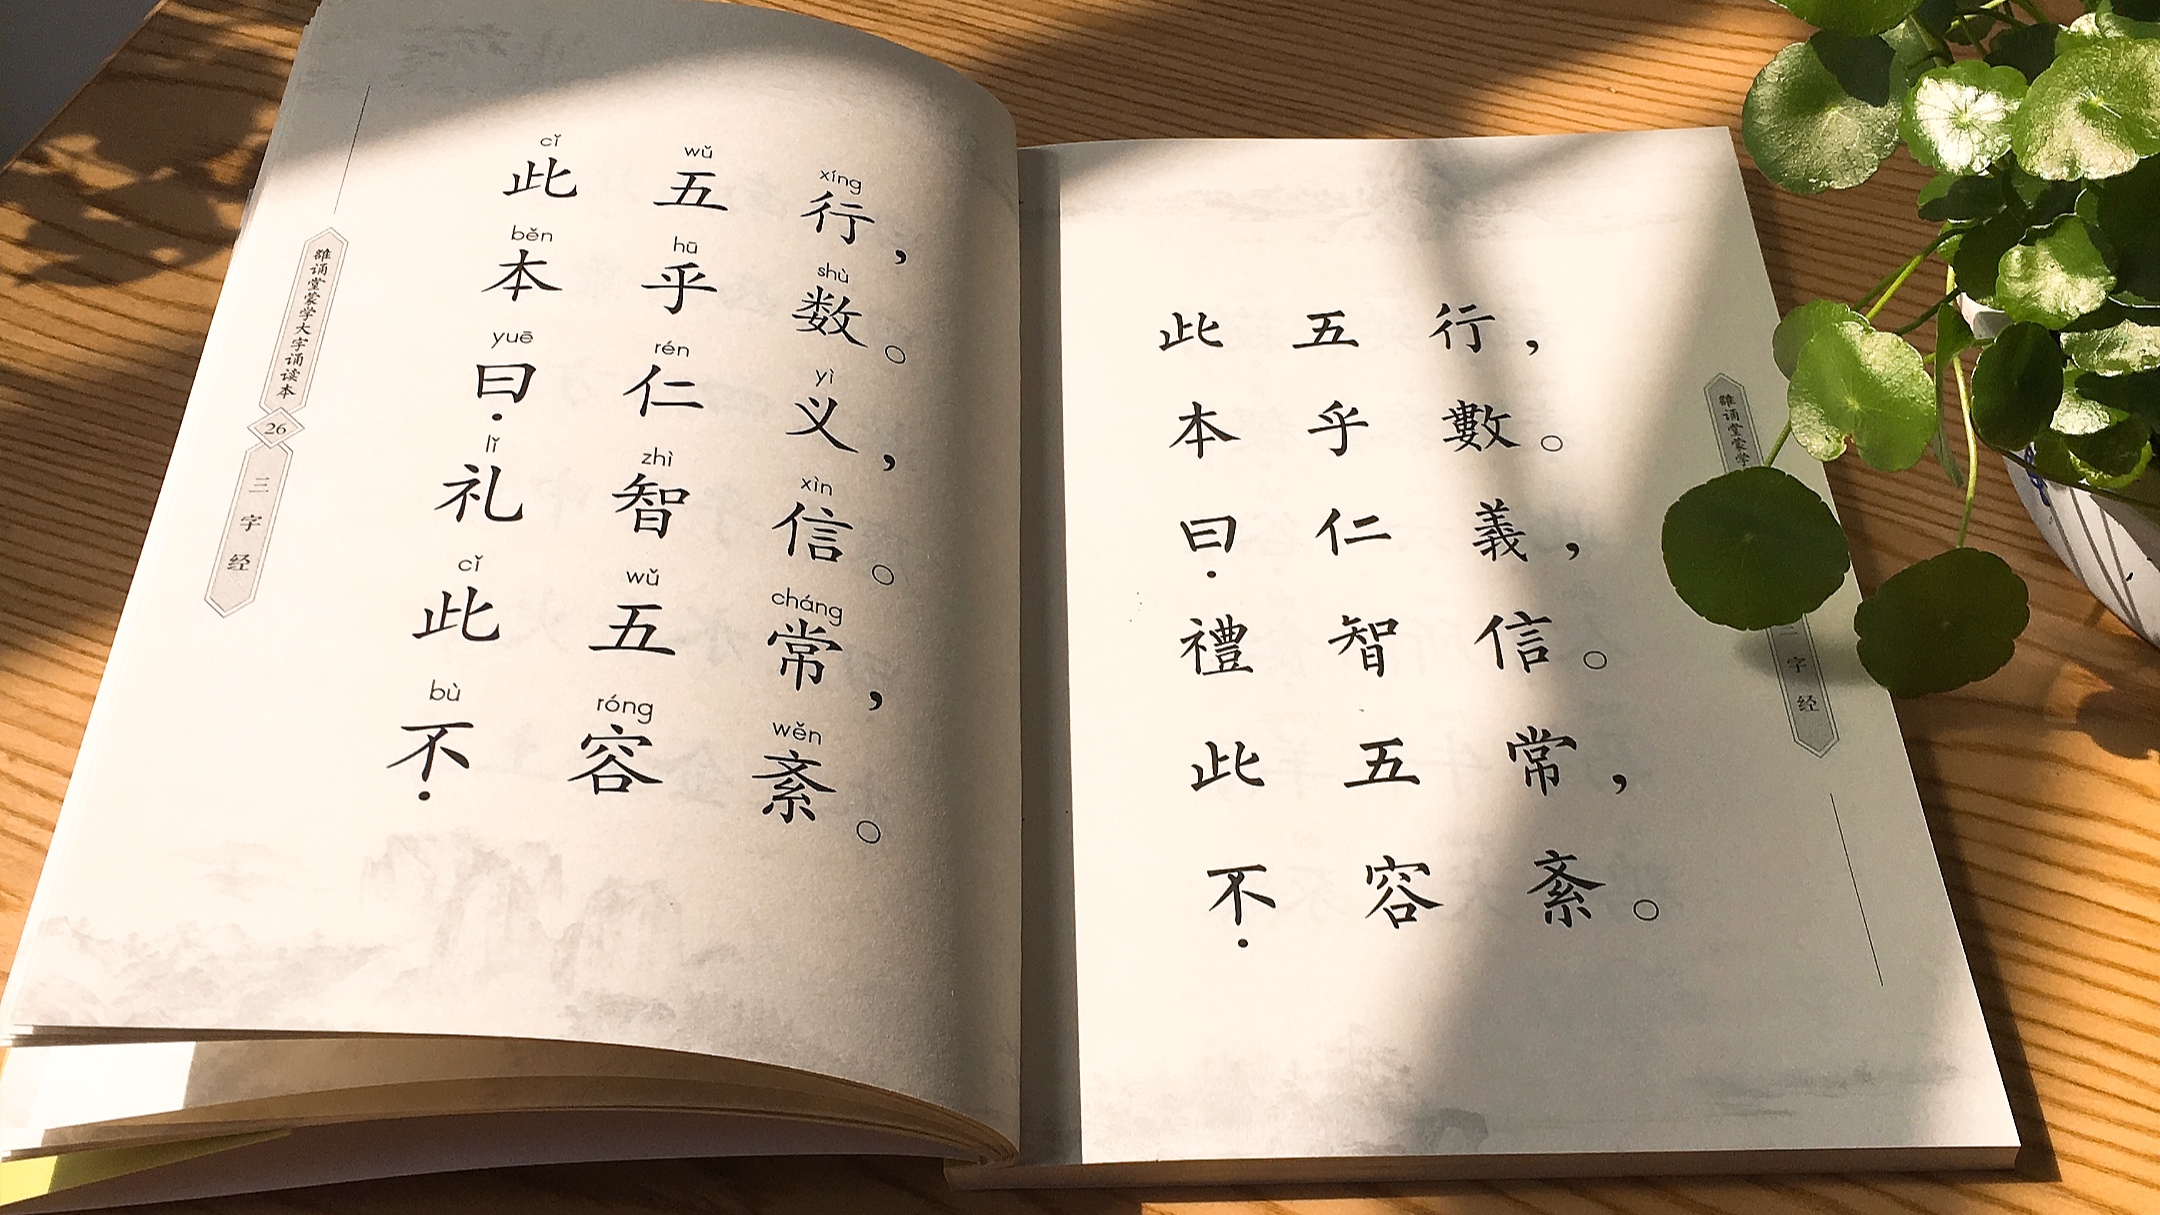 cǐ wǔ xíng
此五行，
běn hū shù
本乎数。
yuē rén yì
曰仁义，
lǐ zhì xìn
礼智信。
cǐ wǔ cháng
此五常，
bù róng wěn
不容紊。
雒诵堂蒙学大字诵读本
26
三字经
此五行，
本乎數。
曰仁義，
禮智信。
此五常，
不容紊。
雒诵堂蒙学
字经